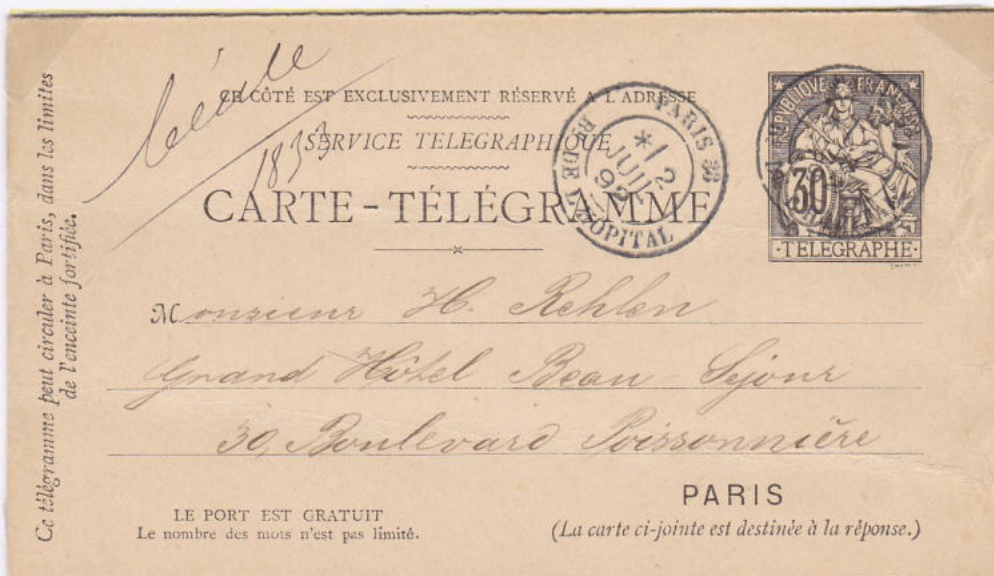 Ce télégramme peut circuler à Paris, dans les limites
de l'enceinte fortifiée.
1833
CE CÔTÉ EST EXCLUSIVEMENT RÉSERVÉ A L'ADRESSE
SERVICE TELEGRAPHIQUE
CARTE-TÉLÉGRAMME
PARIS 33
* 1
2
JUIL
92
R. DE L'HÔPITAL
REPUBLIQUE FRANÇAISE
30
TELEGRAPHE
Monsieur H. Rehlen
Grand Hôtel Beau Sejour
30, Boulevard Poissonnière
PARIS
LE PORT EST GRATUIT
Le nombre des mots n'est pas limité.
(La carte ci-jointe est destinée à la réponse.)